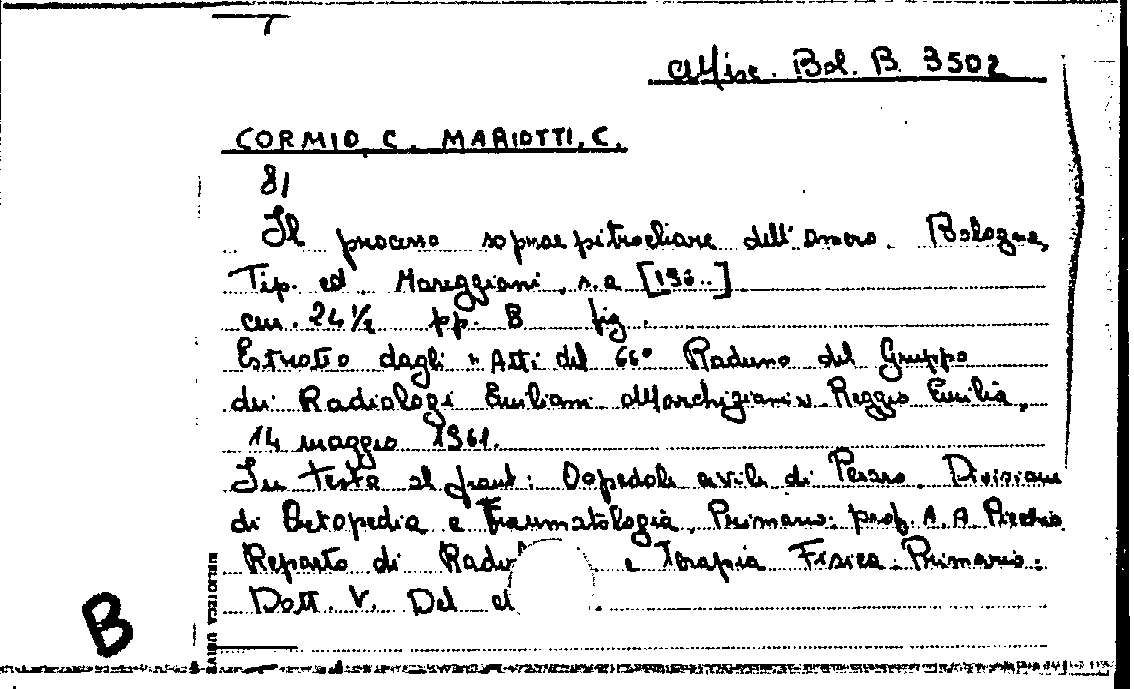 Misc. Bol. B. 3502
CORMIO, C. MARIOTTI, C.
81
Il processo sopraepitrocleare dell'omero. Bologna,
Tip. ed. Mareggiani, s.a [196..]
cm. 24 ½ pp. 8 fig.
Estratto dagli "Atti del 66° Raduno del Gruppo
dei Radiologi Emiliani Reggio Emilia,
14 maggio 1961.
In testa al front: Ospedale civile di Pesaro. Divisione
di Ortopedia e Traumatologia, Primario: prof. A. A.
Reparto di e Terapia Fisica. Primario:
Dott. V. Del
BIBLIOTECA
B